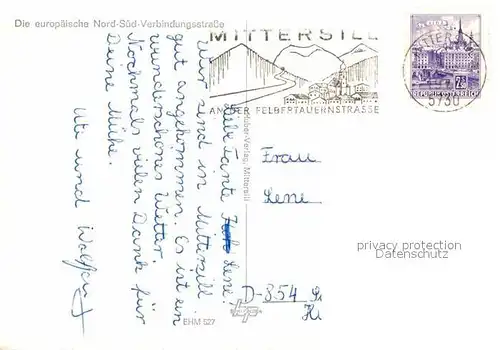 Die europäische Nord-Süd-Verbindungsstraße
MITTERSILL
AN DER FELBERTAUERNSTRASSE
MITTERSILL
5730
REPUBLIK ÖSTERREICH
Liebe Tante Lene.
Wir sind in Mittersill
gut angekommen. Es ist ein
wunderschönes Wetter.
Nochmals vielen Dank für
Deine Mühe.
Ute und Wolfgang
Verlag, Mittersill
EHM 527
Frau
Lene
D-854
privacy protection
Datenschutz